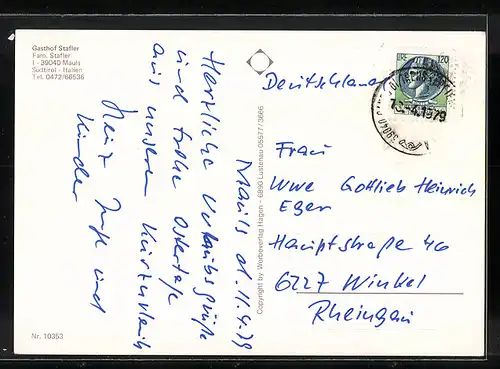 Gasthof Stafler
Fam. Stafler
I - 39040 Mauls
Südtirol - Italien
Tel. 0472/66536
Mauls d. 11.4.79
Herzliche Urlaubsgrüße
und frohe Ostertage
aus unserem Kurzurlaub
Heinz Inge und
Kinder
Nr. 10353
Copyright by Werbeverlag Hagen - 6890 Lustenau 05577/3666
LIRE 120
39040
13-4.1979
Deutschland
Frau
Wwe Gottlieb Heinrich
Eger
Hauptstraße 4a
6227 Winkel
Rheingau